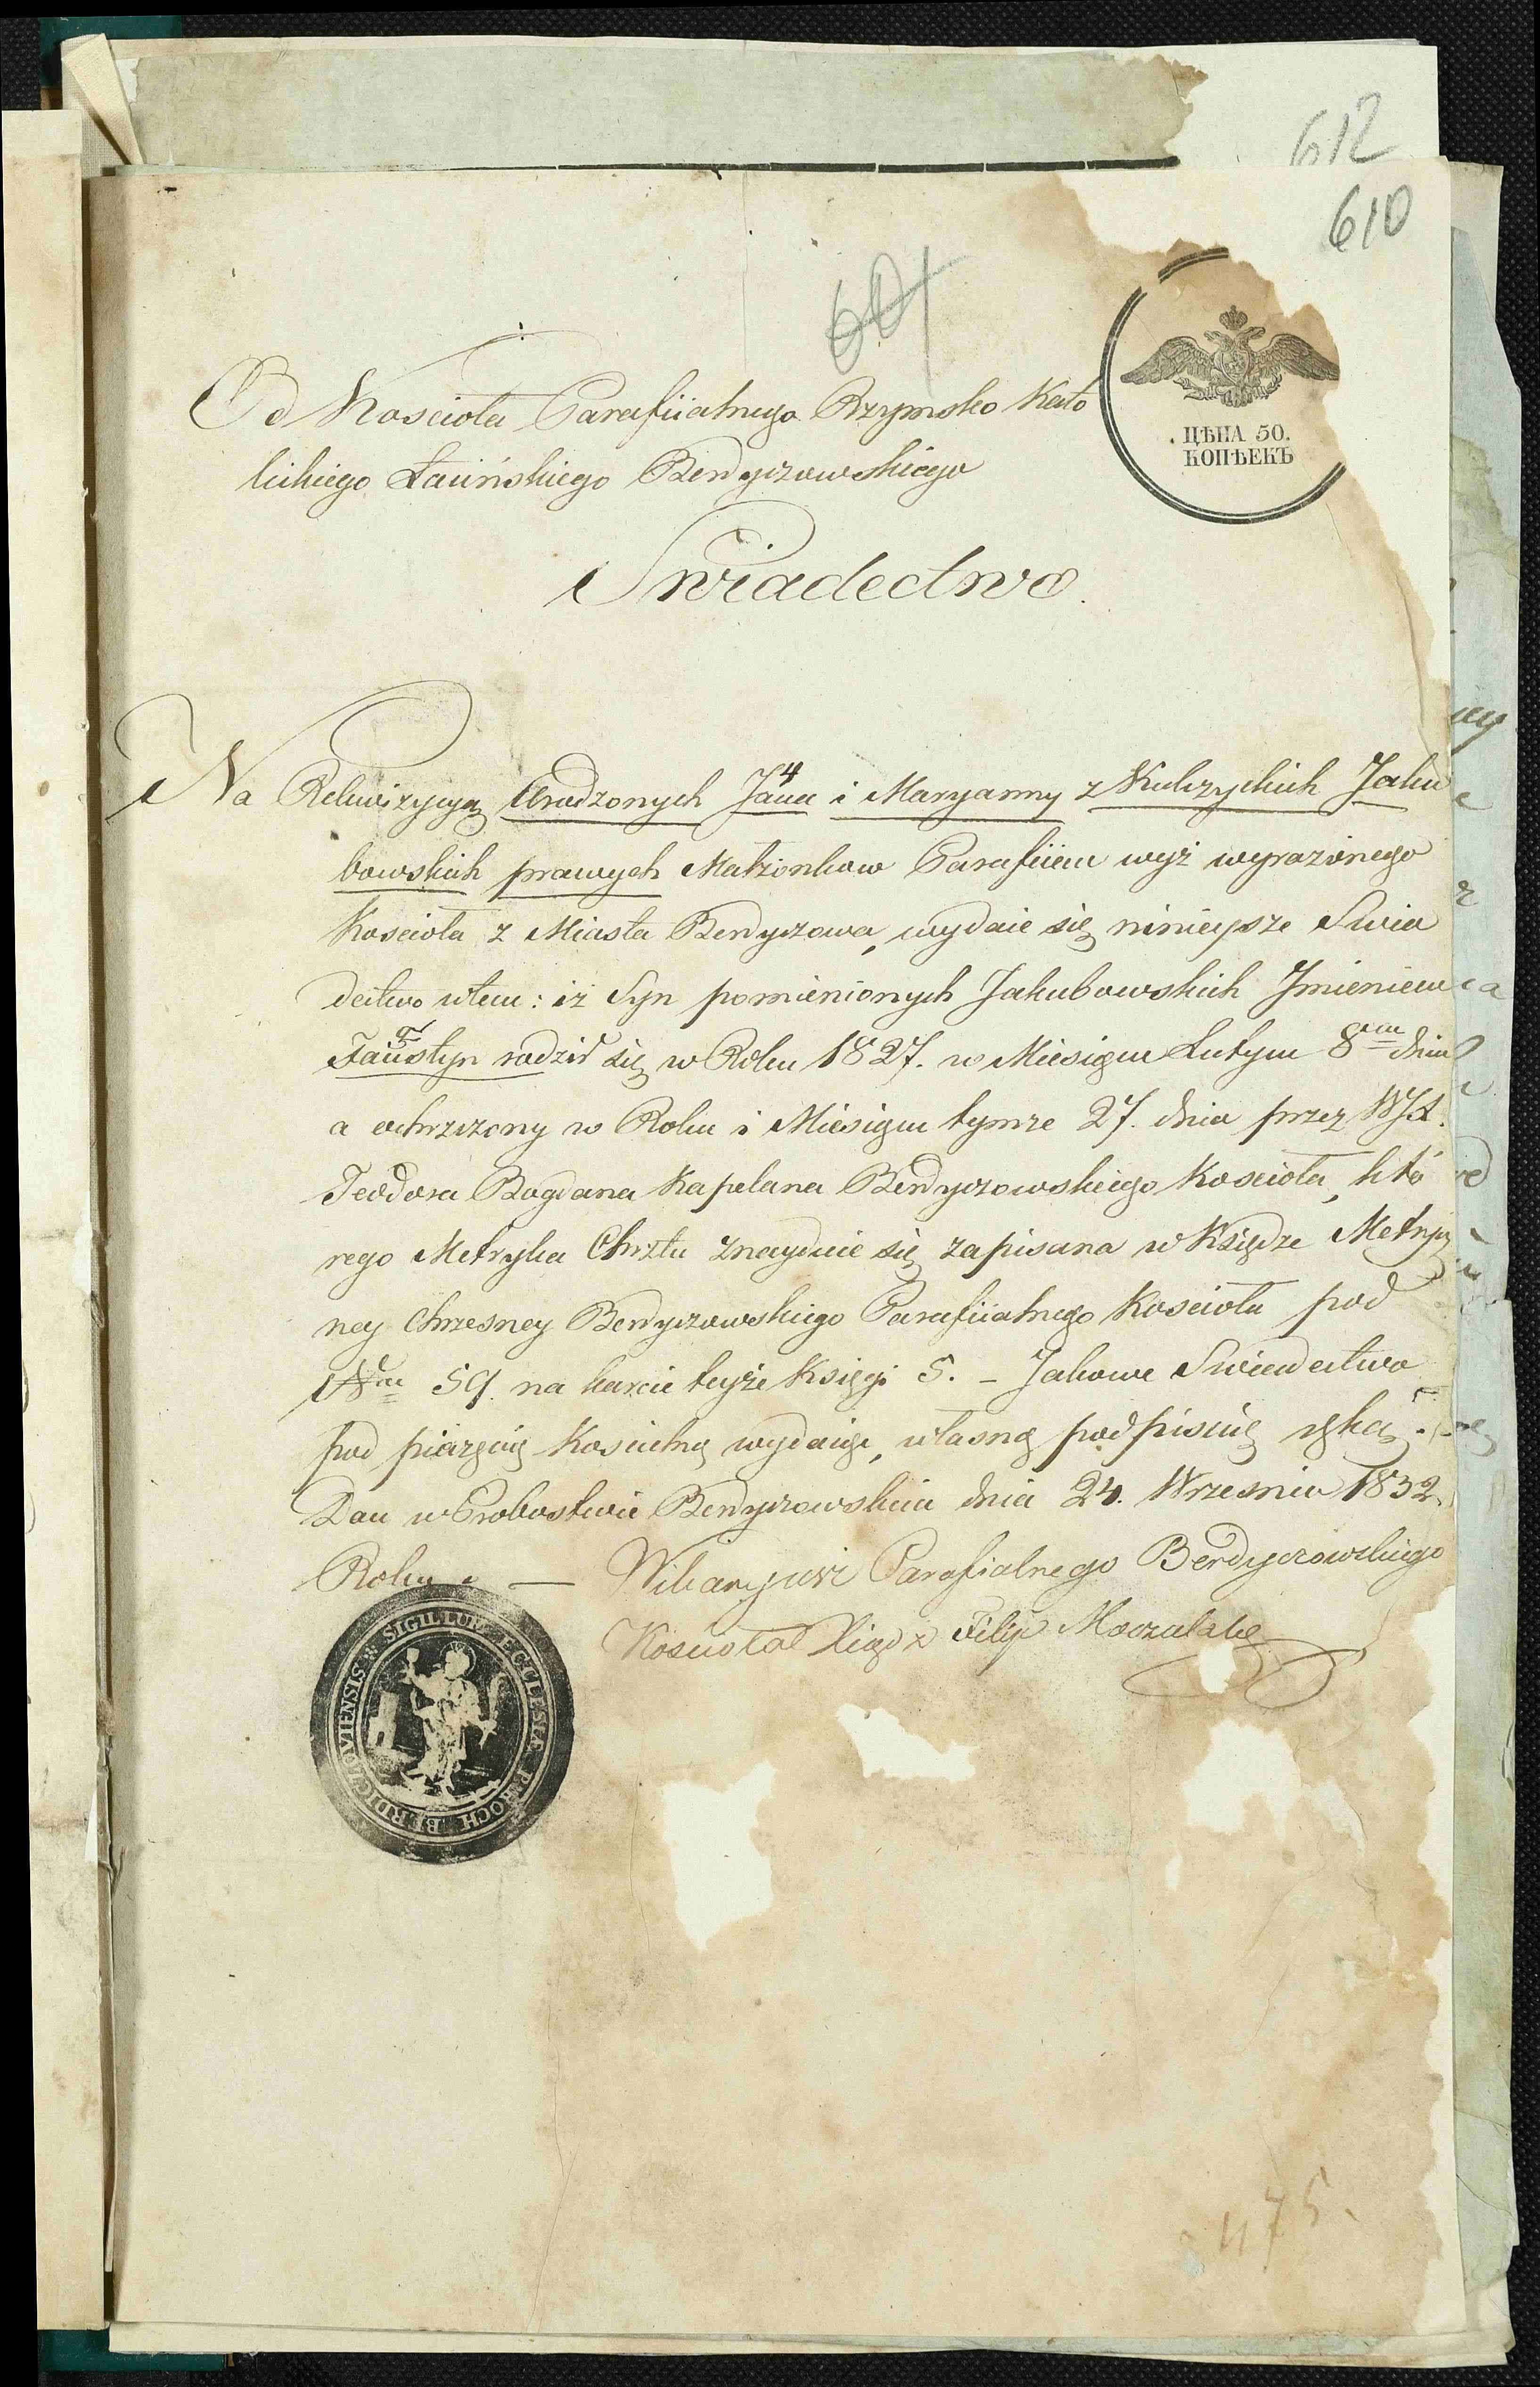 612
610
601
ЦѢНА 50.
КОПѢЕКЪ
Od Koscioła Parafiialnego Rzymsko Kato
lickiego Łacińskiego Berdyczowskiego
Swiadectwo.
Na Rekwizycyą Urodzonych Jana 4 i Maryanny z Kulczyckich Jaku
bowskich prawych Małżonkow Parafiian wyż wyrażonego
Kościoła z Miasta Berdyczowa, wydaie się ninieysze Swia
dectwo wtem: iż Syn pomienionych Jakubowskich Jmieniem
Faustyn rodził się w Roku 1827. w Miesiącu Lutym 8m dnia
a ochrzczony w Roku i Miesiącu tymże 27. dnia przez WJX.
Teodora Bogdana Kapelana Berdyczowskiego Kościoła, któ
rego Metryka Chrztu znayduie się zapisana w Księdze Metrycz
ney Chrzesney Berdyczowskiego Parafiialnego Kościoła pod
Nrm 59. na karcie teyże Księgi 5. – Jakowe Swiadectwo
pod pieczęcią Kościelną wydaiąc, własną podpisuię ręką.
Dan w Probostwie Berdyczowskim dnia 24. Wrzesnia 1832.
Roku. — Wikaryusz Parafialnego Berdyczowskiego
Koscioła Xiądz Filip
SIGILLUM ECCLESIÆ PAROCH BERDICZOVIENSIS
475.